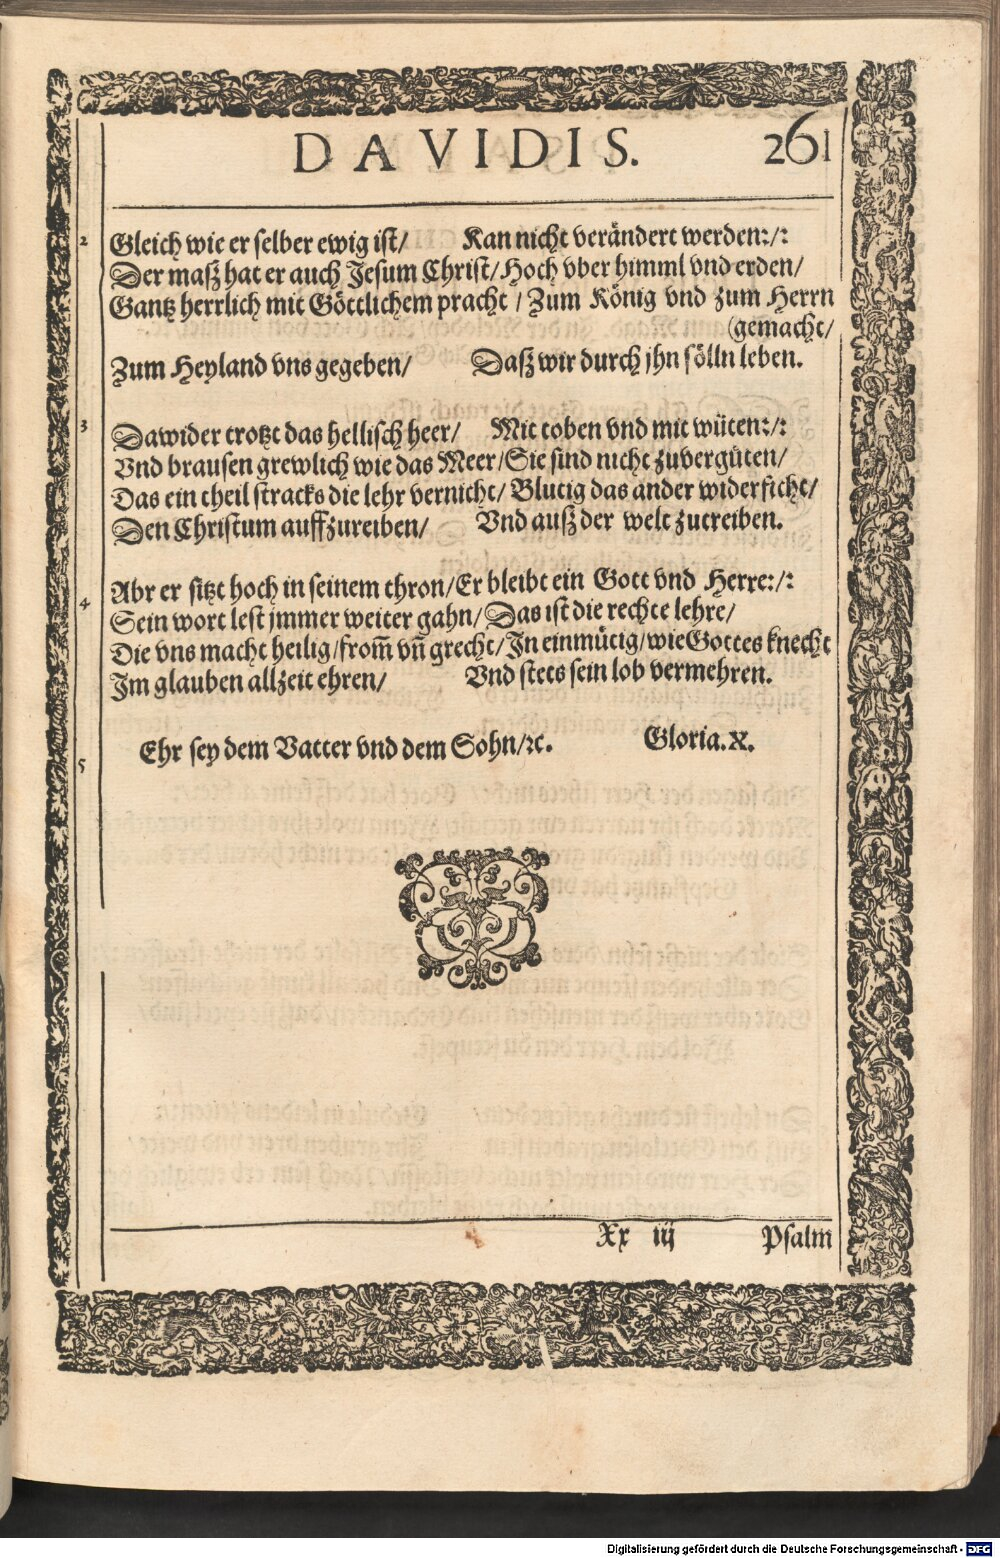 DAVIDIS. 261
2 Gleich wie er selber ewig ist/ Kan nicht verändert werden:/:
Der masz hat er auch Jesum Christ/ Hoch vber himml vnd erden/
Gantz herrlich mit Göttlichem pracht / Zum König vnd zum Herrn
(gemacht/
Zum Heyland vns gegeben/ Dasz wir durch ihn sölln leben.
3 Dawider trotzt das hellisch heer/ Mit toben vnd mit wüten:/:
Vnd brausen grewlich wie das Meer/ Sie sind nicht zuvergüten/
Das ein theil stracks die lehr vernicht/ Blutig das ander widerficht/
Den Christum auffzureiben/ Vnd ausz der welt zutreiben.
4 Abr er sitzt hoch in seinem thron/ Er bleibt ein Gott vnd Herre:/:
Sein wort lest jmmer weiter gahn/ Das ist die rechte lehre/
Die vns macht heilig/ from̃ vñ grecht/ In einmütig/ wie Gottes knecht
Im glauben allzeit ehren/ Vnd stets sein lob vermehren.
5 Ehr sey dem Vatter vnd dem Sohn/ꝛc. Gloria. X.
Xx iij Psalm
Digitalisierung gefördert durch die Deutsche Forschungsgemeinschaft - DFG